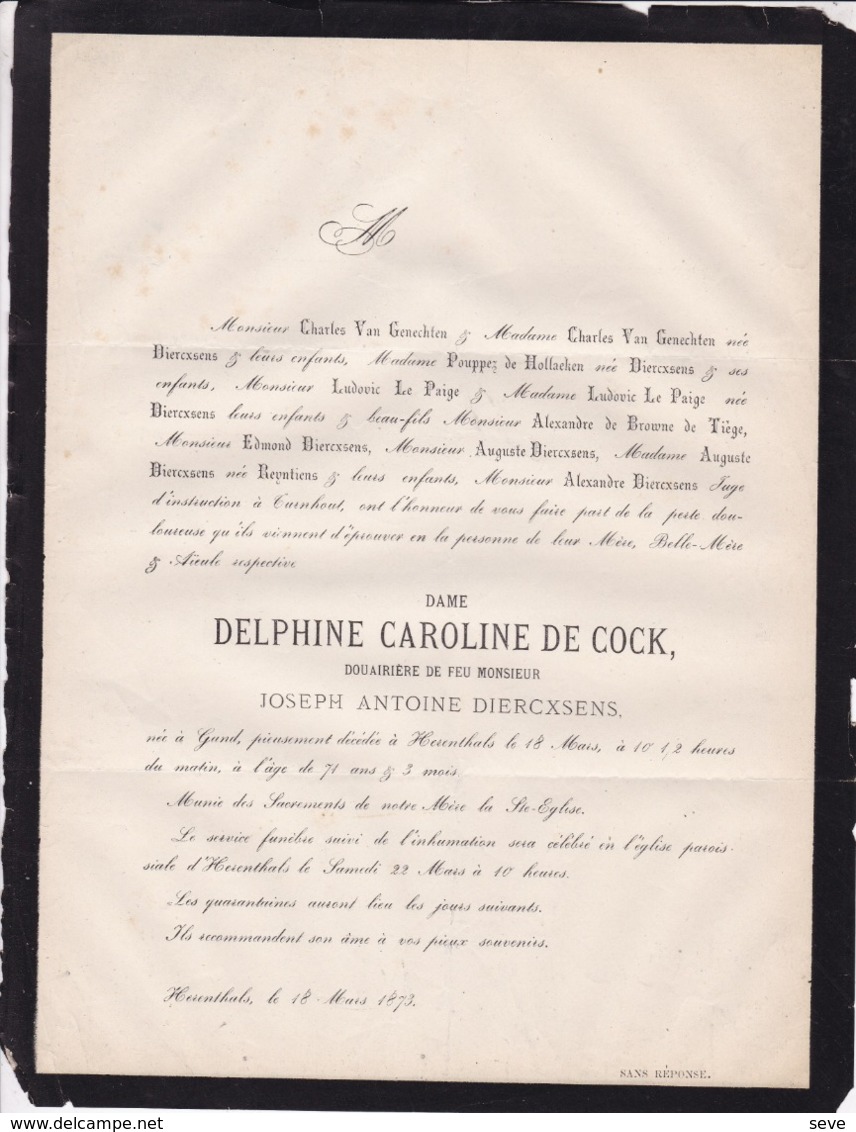 M
Monsieur Charles Van Genechten & Madame Charles Van Genechten née
Diercxsens & leurs enfants, Madame Pouppez de Hollaeken née Diercxsens & ses
enfants, Monsieur Ludovic Le Paige & Madame Ludovic Le Paige née
Diercxsens leurs enfants & beau-fils Monsieur Alexandre de Browne de Tiège,
Monsieur Edmond Diercxsens, Monsieur Auguste Diercxsens, Madame Auguste
Diercxsens née Reyntiens & leurs enfants, Monsieur Alexandre Diercxsens Juge
d'instruction à Turnhout, ont l'honneur de vous faire part de la perte dou-
loureuse qu'ils viennent d'éprouver en la personne de leur Mère, Belle-Mère
& Aïeule respective
DAME
DELPHINE CAROLINE DE COCK,
DOUAIRIÈRE DE FEU MONSIEUR
JOSEPH ANTOINE DIERCXSENS,
née à Gand, pieusement décédée à Herenthals le 18 Mars, à 10 1/2 heures
du matin, à l'âge de 71 ans & 3 mois.
Munie des Sacrements de notre Mère la Ste-Eglise.
Le service funèbre suivi de l'inhumation sera célébré en l'église parois-
siale d'Herenthals le Samedi 22 Mars à 10 heures.
Les quarantaines auront lieu les jours suivants.
Ils recommandent son âme à vos pieux souvenirs.
Herenthals, le 18 Mars 1873.
SANS RÉPONSE.
© delcampe.net
seve